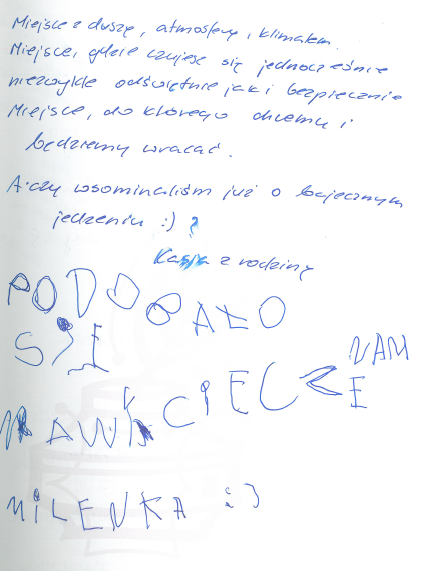 Miejsce z duszą, atmosferą, klimatem.
Miejsce, gdzie czujesz się jednocześnie
niezwykle odświętnie jak i bezpiecznie
Miejsce, do którego chcemy i
będziemy wracać.
A czy wspominaliśmy już o bajecznym
jedzeniu :)
Kasia z rodziną
PODOBAŁO
SIĘ NAM
NAWK CIECZE
MILENKA :)